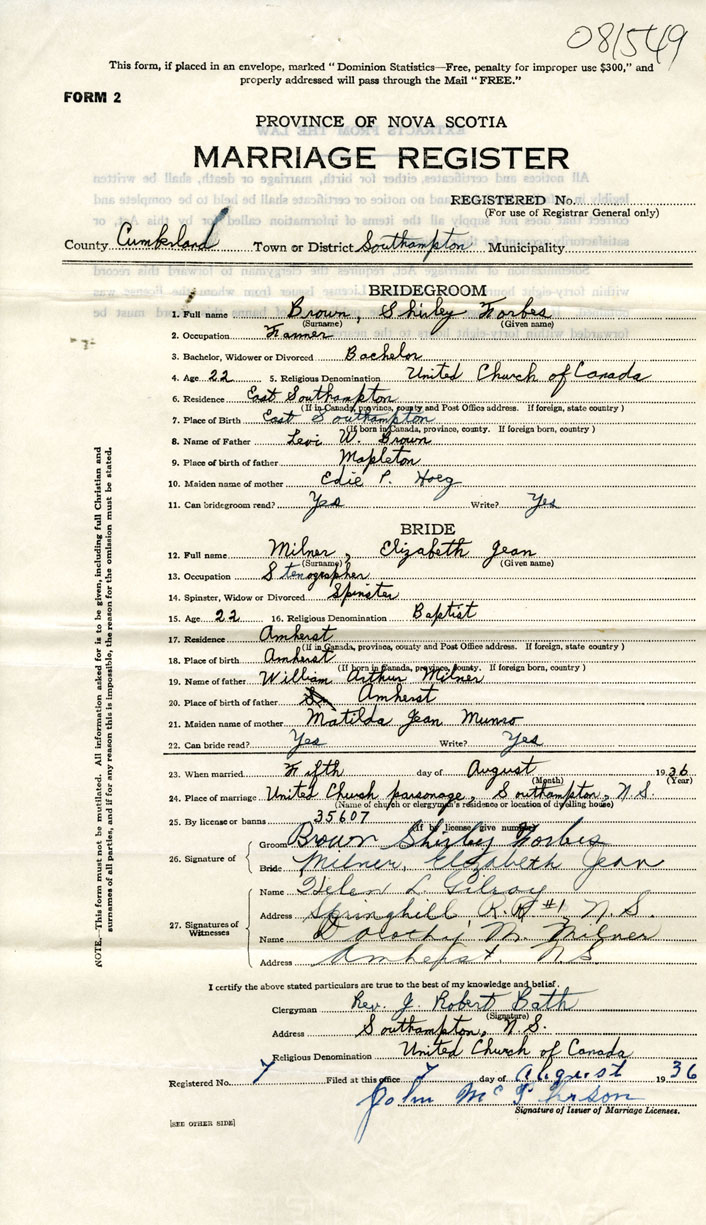 081549
This form, if placed in an envelope, marked "Dominion Statistics—Free, penalty for improper use $300," and
properly addressed will pass through the Mail "FREE."
FORM 2
PROVINCE OF NOVA SCOTIA
MARRIAGE REGISTER
REGISTERED No.
(For use of Registrar General only)
County Cumberland Town or District Southampton Municipality
BRIDEGROOM
1. Full name Brown, Shirley Forbes
(Surname) (Given name)
2. Occupation Farmer
3. Bachelor, Widower or Divorced Bachelor
4. Age 22 5. Religious Denomination United Church of Canada
6. Residence East Southampton
(If in Canada, province, county and Post Office address. If foreign, state country)
7. Place of Birth East Southampton
(If born in Canada, province, county. If foreign born, country)
8. Name of Father Levi W. Brown
9. Place of birth of father Mapleton
10. Maiden name of mother Edie P. Hoeg
11. Can bridegroom read? Yes Write? Yes
BRIDE
12. Full name Milner, Elizabeth Jean
(Surname) (Given name)
13. Occupation Stenographer
14. Spinster, Widow or Divorced Spinster
15. Age 22 16. Religious Denomination Baptist
17. Residence Amherst
(If in Canada, province, county and Post Office address. If foreign, state country)
18. Place of birth Amherst
(If born in Canada, province, county. If foreign born, country)
19. Name of father William Arthur Milner
20. Place of birth of father Amherst
21. Maiden name of mother Matilda Jean Munro
22. Can bride read? Yes Write? Yes
23. When married Fifth day of August 1936
(Month) (Year)
24. Place of marriage United Church parsonage, Southampton, N.S.
(Name of church or clergyman's residence or location of dwelling house)
25. By license or banns 35607
(If by license give number)
26. Signature of
Groom Brown Shirley Forbes
Bride Milner, Elizabeth Jean
27. Signatures of Witnesses
Name Helen L. Gilroy
Address Springhill R.R #1, N.S.
Name Dorothy M. Milner
Address Amherst, N.S.
I certify the above stated particulars are true to the best of my knowledge and belief.
Clergyman Rev. J. Robert Bath
(Signature)
Address Southampton, N.S.
Religious Denomination United Church of Canada
Registered No. 7 Filed at this office 7 day of August 1936
John McPherson
Signature of Issuer of Marriage Licenses.
[SEE OTHER SIDE]
NOTE.—This form must not be mutilated. All information asked for is to be given, including full Christian and
surnames of all parties, and if for any reason this is impossible, the reason for the omission must be stated.